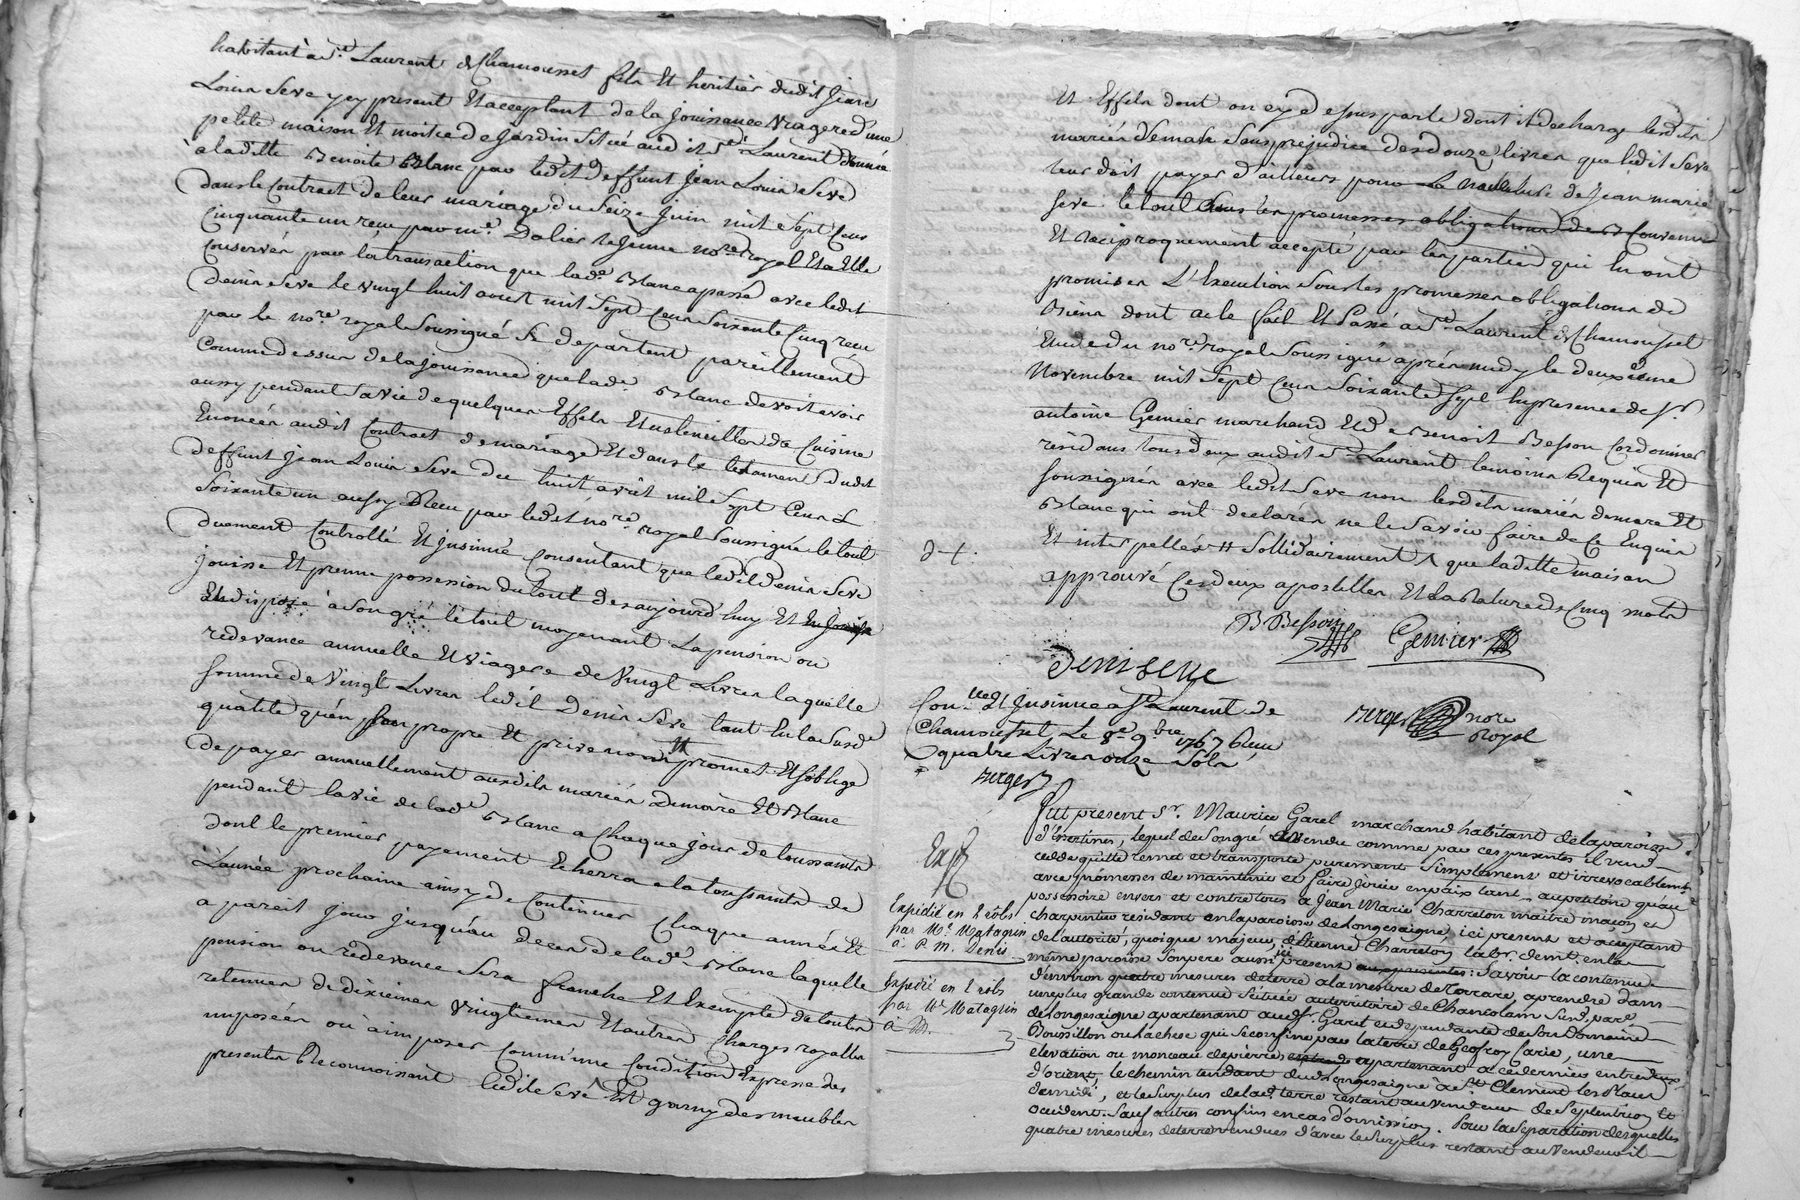 habitant a St. Laurent de Chamousset fils Et heritier dudit Jean
Louis Seve y ey present Et acceptant de la jouissance Viagere d'une
petite maison Et moitié de Jardin Situé audit St. Laurent donnée
a laditte Benoite Blanc par ledit deffunt Jean Louis Seve
dans le Contract de leur mariage du Seize Juin mil Sept Cens
Cinquante un recu par me. Dalier le jeune nore. royal Et a Elle
Conservée par la transaction que lade. Blanc a passé avec ledit
Denis Seve le vingt huit aoust mil Sept Cens Soixante Cinq recu
par le nore. royal Soussigné Se departent pareillement
Comme dessus de la jouissance que lade. Blanc devoit avoir
aussy pendant Sa vie de quelques Effets Et ustencilles de Cuisine
Enoncés audit Contract de mariage Et dans le testament dudit
deffunt Jean Louis Seve du huit avril mil Sept Cens
Soixante un aussy Recu par ledit nore. royal Soussigné le tout
duement Controllé Et insinué Consentant que ledit Denis Seve
jouisse Et prenne possession du tout des aujourd'huy Et
Et dispose a Son gré le tout moyenant La pension ou
redevance annuelle Et Viagere de Vingt Livres laquelle
Somme de Vingt Livres ledit Denis Seve tant En la Susde.
qualité qu'en Son propre Et privé nom promet Et S'oblige
de payer annuellement auxdits mariés Demare Et Blanc
pendant la vie de lade. Blanc a Chaque jour de toussaints
dont le premier payement Echerra a la toussaints de
L'année prochaine ainsy de Continuer Chaque année Et
a pareil jour jusqu'au deces de lade. Blanc laquelle
pension ou redevance Sera franche Et Exempte de toutes
retenues de dixiemes Vingtiemes Et autres Charges royalles
imposées ou a imposer Comm'une Condition Expresse des
presentes Reconnoissant ledit Seve Est garny des meubles
Et Effets dont on ey dessus parlé dont il decharge lesdits
mariés Demare Sans prejudice des douze livres que ledit Seve
leur doit payer d'ailleurs pour la de Jean marie
Seve le tout Convenu
Et reciproquement accepté par les parties qui En ont
promis En L'Execution Sous les promesses obligations de
Biens dont acte fait Et Passé a St. Laurent de Chamousset
Etude du nore. royal Soussigné aprés midy le deuxieme
Novembre mil Sept Cens Soixante Sept En presence de Sr.
antoine Genier marchand Et de Benoit Besson Cordonnier
residans tous deux audit St. Laurent temoins Requis Et
Soussignés avec ledit Seve non lesdits mariés demare Et
Blanc qui ont declarés ne le Savoir faire de Ce Enquis
Et interpellés # Sollidairement ^ que laditte maison
approuvé Ces deux apostilles Et la Rature de Cinq mots
B Besson Genier
deni seve
Con.lle Et Insinué a St. Laurent de
Chamousset Le 8e. 9bre 1767 Recu
quatre Livres onze Sols
Berger
Berger nore
Royal
Expé
Expédié en 2 rôls
par Me. Matagrin
à P. M. Denis
Expédié en 2 rôls
par Me Matagrin
Fut present Sr. Maurice Garel marchand habitant de la paroisse
d'Essertines, lequel de Son gré a vendu comme par ces presentes il vend
cedde quitte remet et transporte purement Simplement et irrevocablemt.
avec promesses de maintenir et faire jouir en paix tant au petitoire qu'au
possessoire envers et contre tous à Jean Marie Charreton maitre maçon et
charpentier residant en la paroisse de Longesaigne, ici present et acceptant
de l'autorité, quoique majeur, d'Etienne Charreton labr. demt. en la
même paroisse Son pere aussi ici present : Savoir la contenue
d'environ quatre mesures de terre a la mesure de Tarare, a prendre dans
une plus grande contenue Scituée au territoire de Chancolam Susd. pare.
de Longesaigne apartenant aud. Sr. Garel et dependante de Son Domaine
Boussillon qui Se confine par la terre de Geofroy Carie, une
elevation ou monceau de pierres apartenant a ce dernier entre deux
d'orient, le chemin tendant dud. Longesaigne à St. Clement les Places
de midi, et le Surplus de lad. terre restant au Vendeur de Septentrion et
occident. Sauf autres confins en cas d'omission. Pour la Separation desquelles
quatre mesures de terre vendues d'avec le Surplus restant au Vendeur il